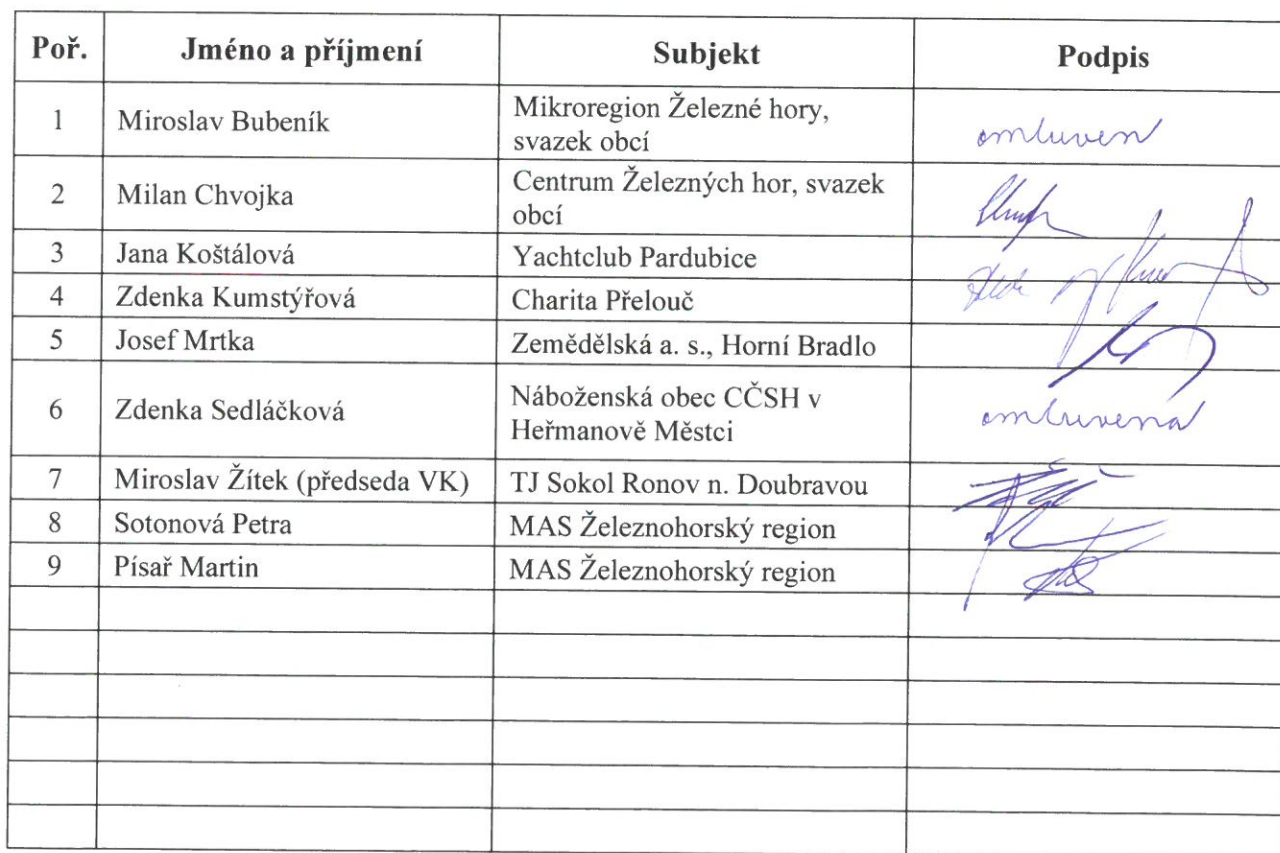 Poř. Jméno a příjmení Subjekt Podpis
1 Miroslav Bubeník Mikroregion Železné hory,
svazek obcí omluven
2 Milan Chvojka Centrum Železných hor, svazek
obcí
3 Jana Koštálová Yachtclub Pardubice
4 Zdenka Kumstýřová Charita Přelouč
5 Josef Mrtka Zemědělská a. s., Horní Bradlo
6 Zdenka Sedláčková Náboženská obec CČSH v
Heřmanově Městci omluvena
7 Miroslav Žítek (předseda VK) TJ Sokol Ronov n. Doubravou
8 Sotonová Petra MAS Železnohorský region
9 Písař Martin MAS Železnohorský region